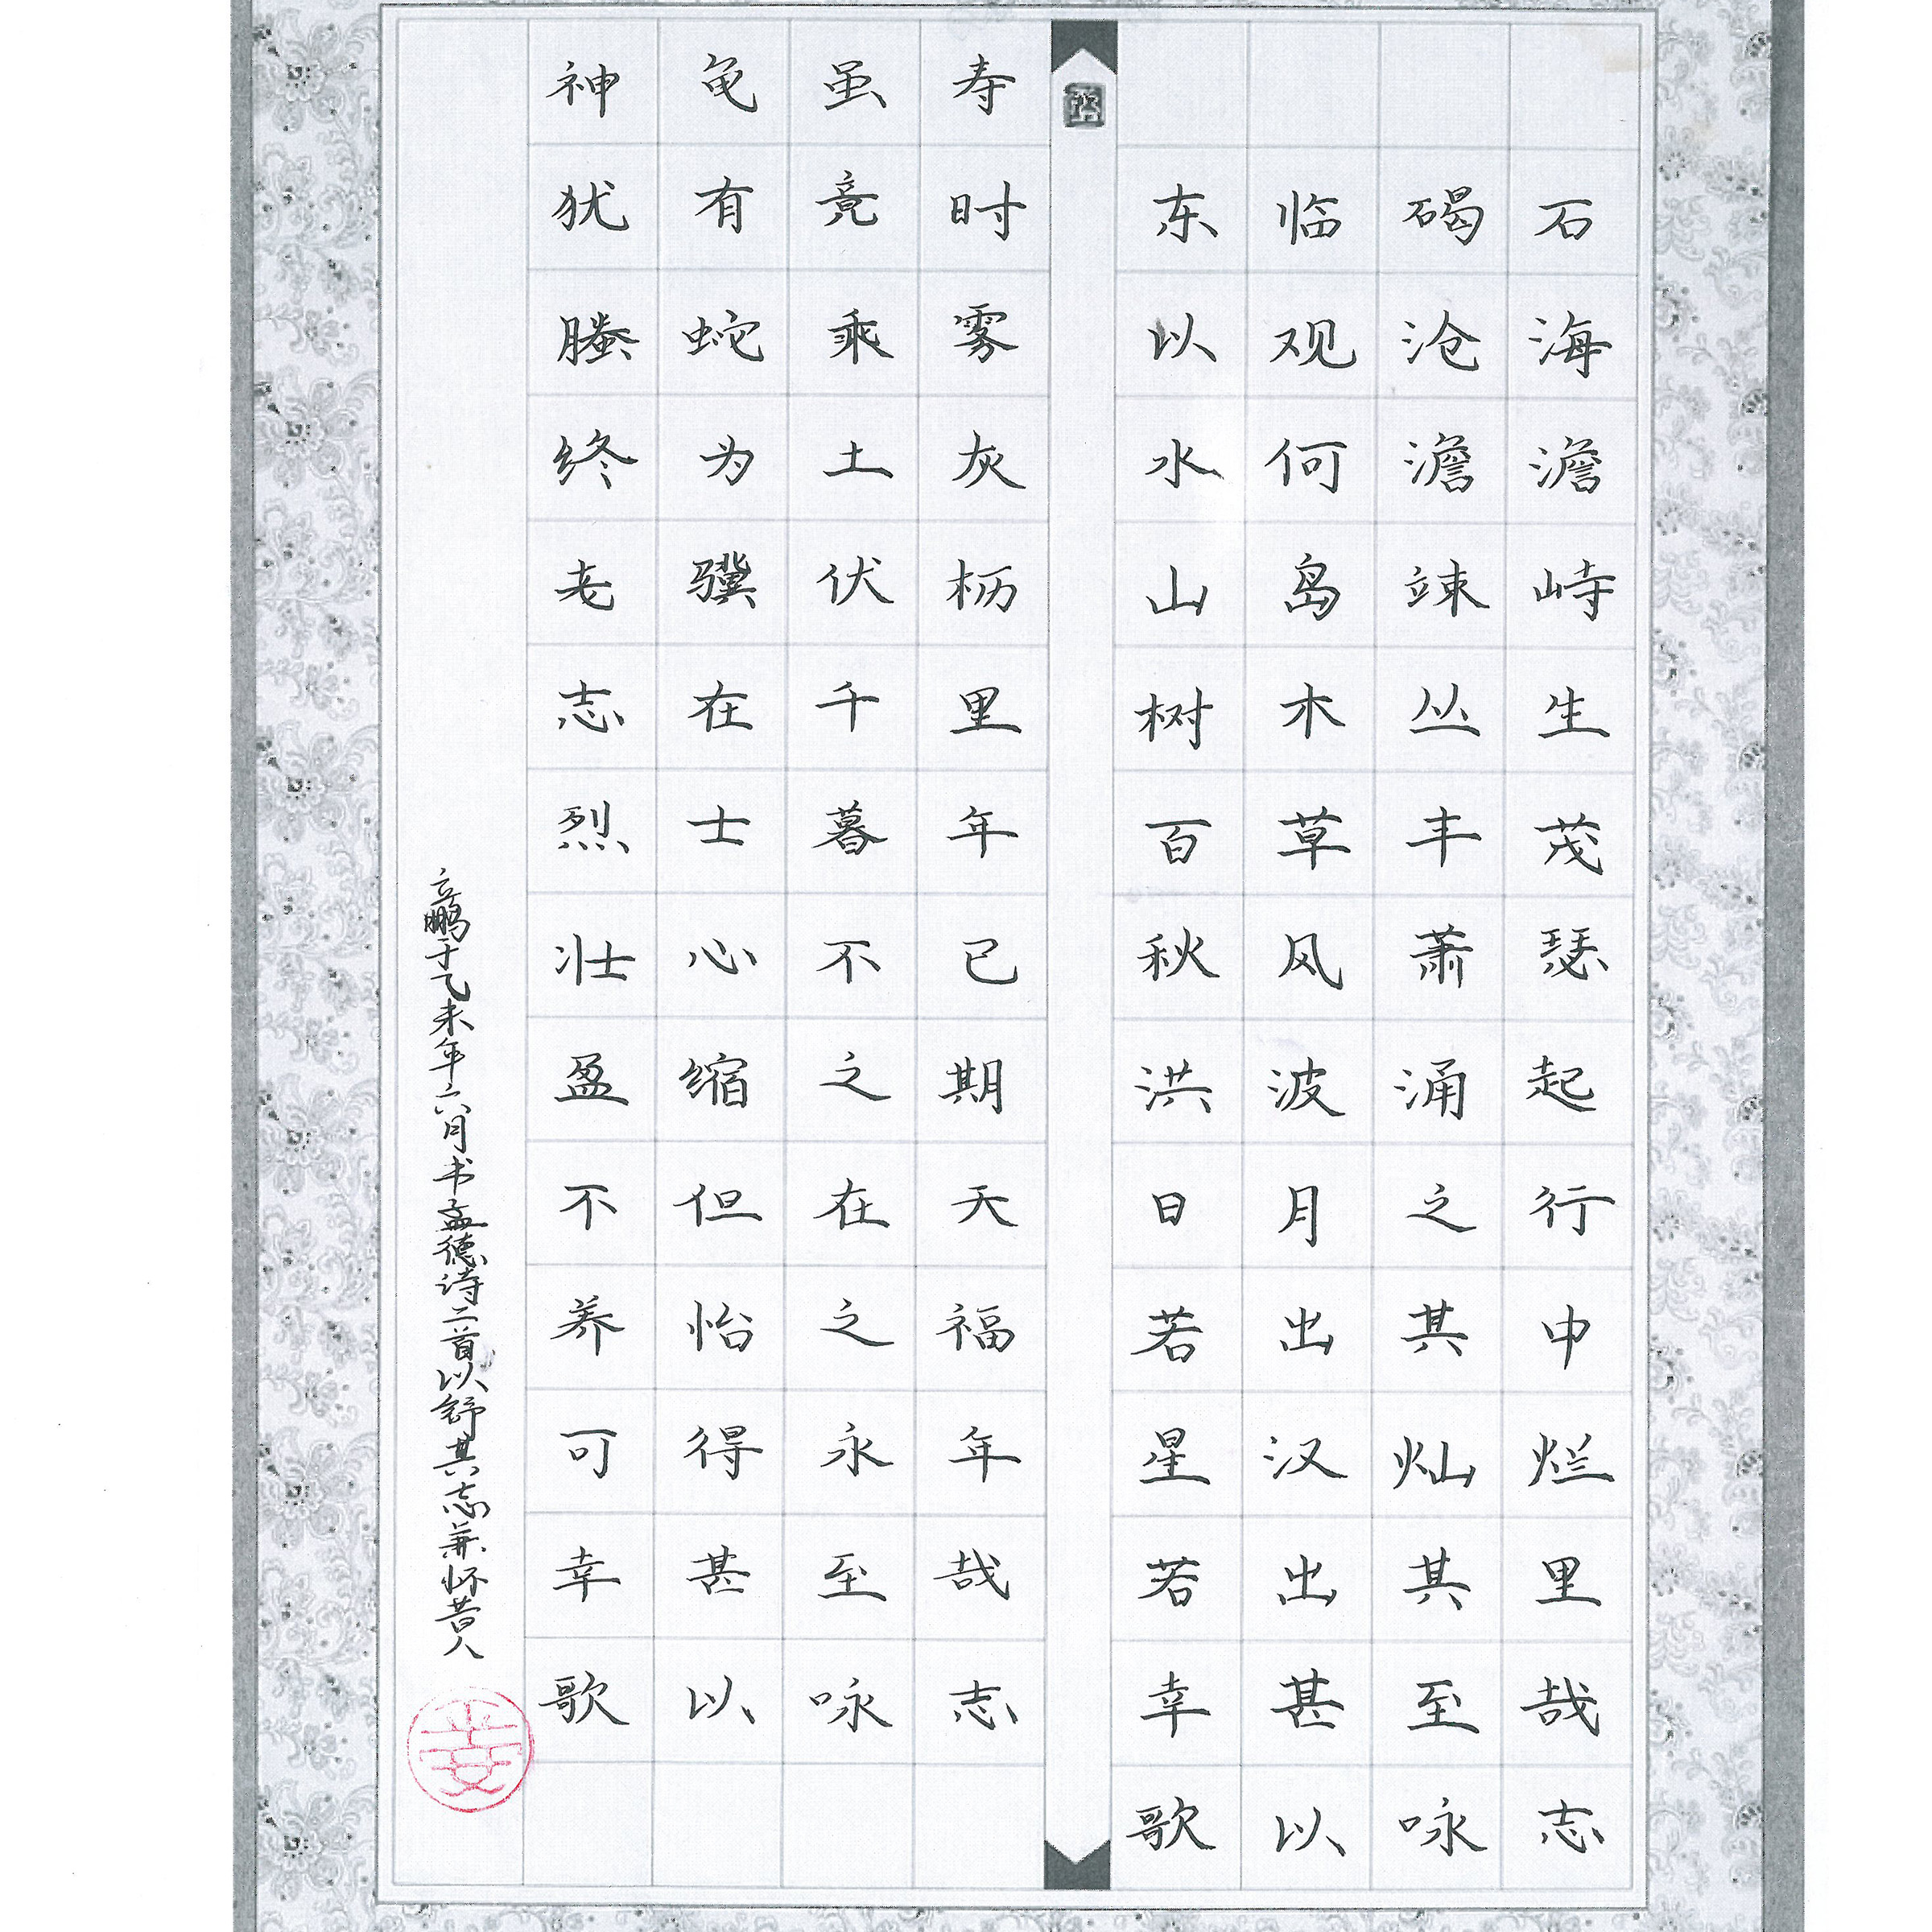 东临碣石
以观沧海
水何澹澹
山岛竦峙
树木丛生
百草丰茂
秋风萧瑟
洪波涌起
日月之行
若出其中
星汉灿烂
若出其里
幸甚至哉
歌以咏志
神龟虽寿
犹有竟时
螣蛇乘雾
终为土灰
老骥伏枥
志在千里
烈士暮年
壮心不已
盈缩之期
不但在天
养怡之福
可得永年
幸甚至哉
歌以咏志
立鹏于乙未年六月书孟德诗二首以舒其志兼怀昔人